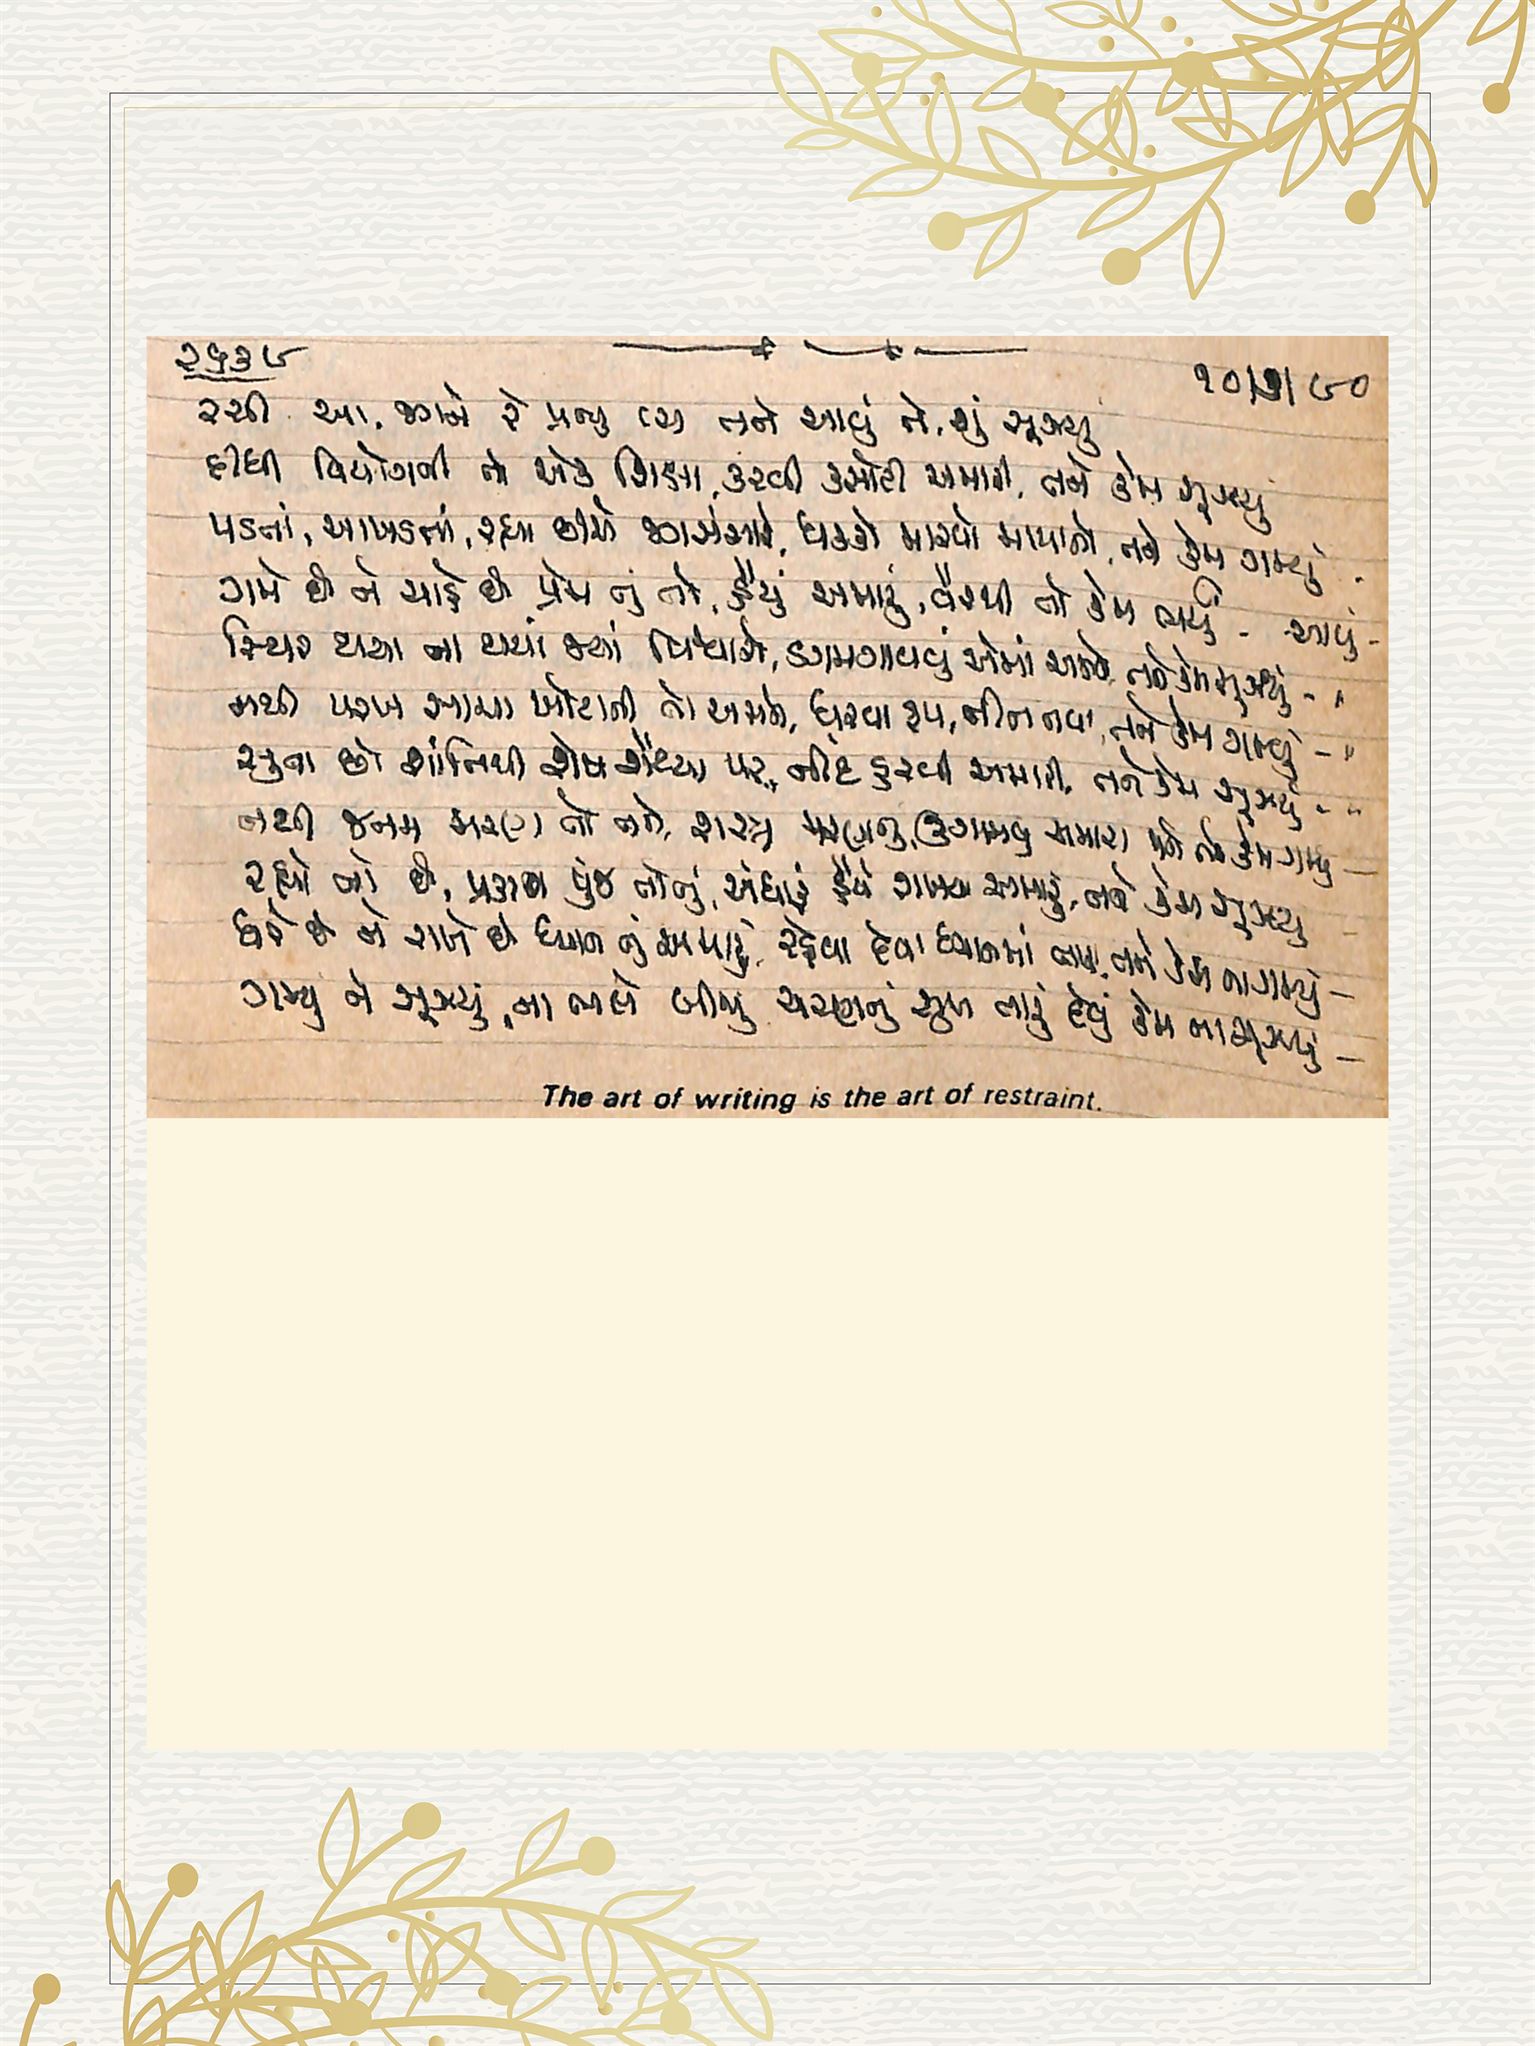 ૨૫૩૯
૧૦/૭/૯૦
રચી આ, જગને રે પ્રભુ તને આવું તે, શું સૂઝ્યું
દીધી વિયોગની તો એક શિક્ષા, કરવી કસોટી અમારી, તને કેમ સૂઝ્યું
પડતાં, આખડતાં, રહ્યા છીએ જગમાં, ધક્કો મારવો માયાનો, તને કેમ ગમ્યું
ગમે છે ને ચાહે છે પ્રેમ નું તો, હૈયું અમારું, વૈરથી તો કેમ ભર્યું - આવું -
સ્થિર થયા ના થયાં જ્યાં વિચારો, ડગમગાવવું એમાં અમને, તને કેમ સૂઝ્યું - "
નથી પરખ સાચા ખોટાની તો અમને, ધરવા રૂપ, નીત નવા, તને કેમ ગમ્યું - "
સુતા છો શાંતિથી શેષ શૈય્યા પર, નીંદ હરવી અમારી, તને કેમ સૂઝ્યું - "
નથી જનમ મરણ તો તને, અમારા કેમ ગમ્યું -
રહ્યો તો છે, પ્રકાશ પુંજ તો તું, અંધારું હૈયે રાખવા અમારું, તને કેમ સૂઝ્યું -
ધરે છે ને રાખે છે ધ્યાન તું અમારું, રહેવા દેવા ધ્યાનમાં તારા, તને કેમ ના ગમ્યું -
ગમ્યું ને સૂઝ્યું, ના ભલે બીજું ચરણનું સુખ તારું દેવું કેમ ના સૂઝ્યું -
The art of writing is the art of restraint.